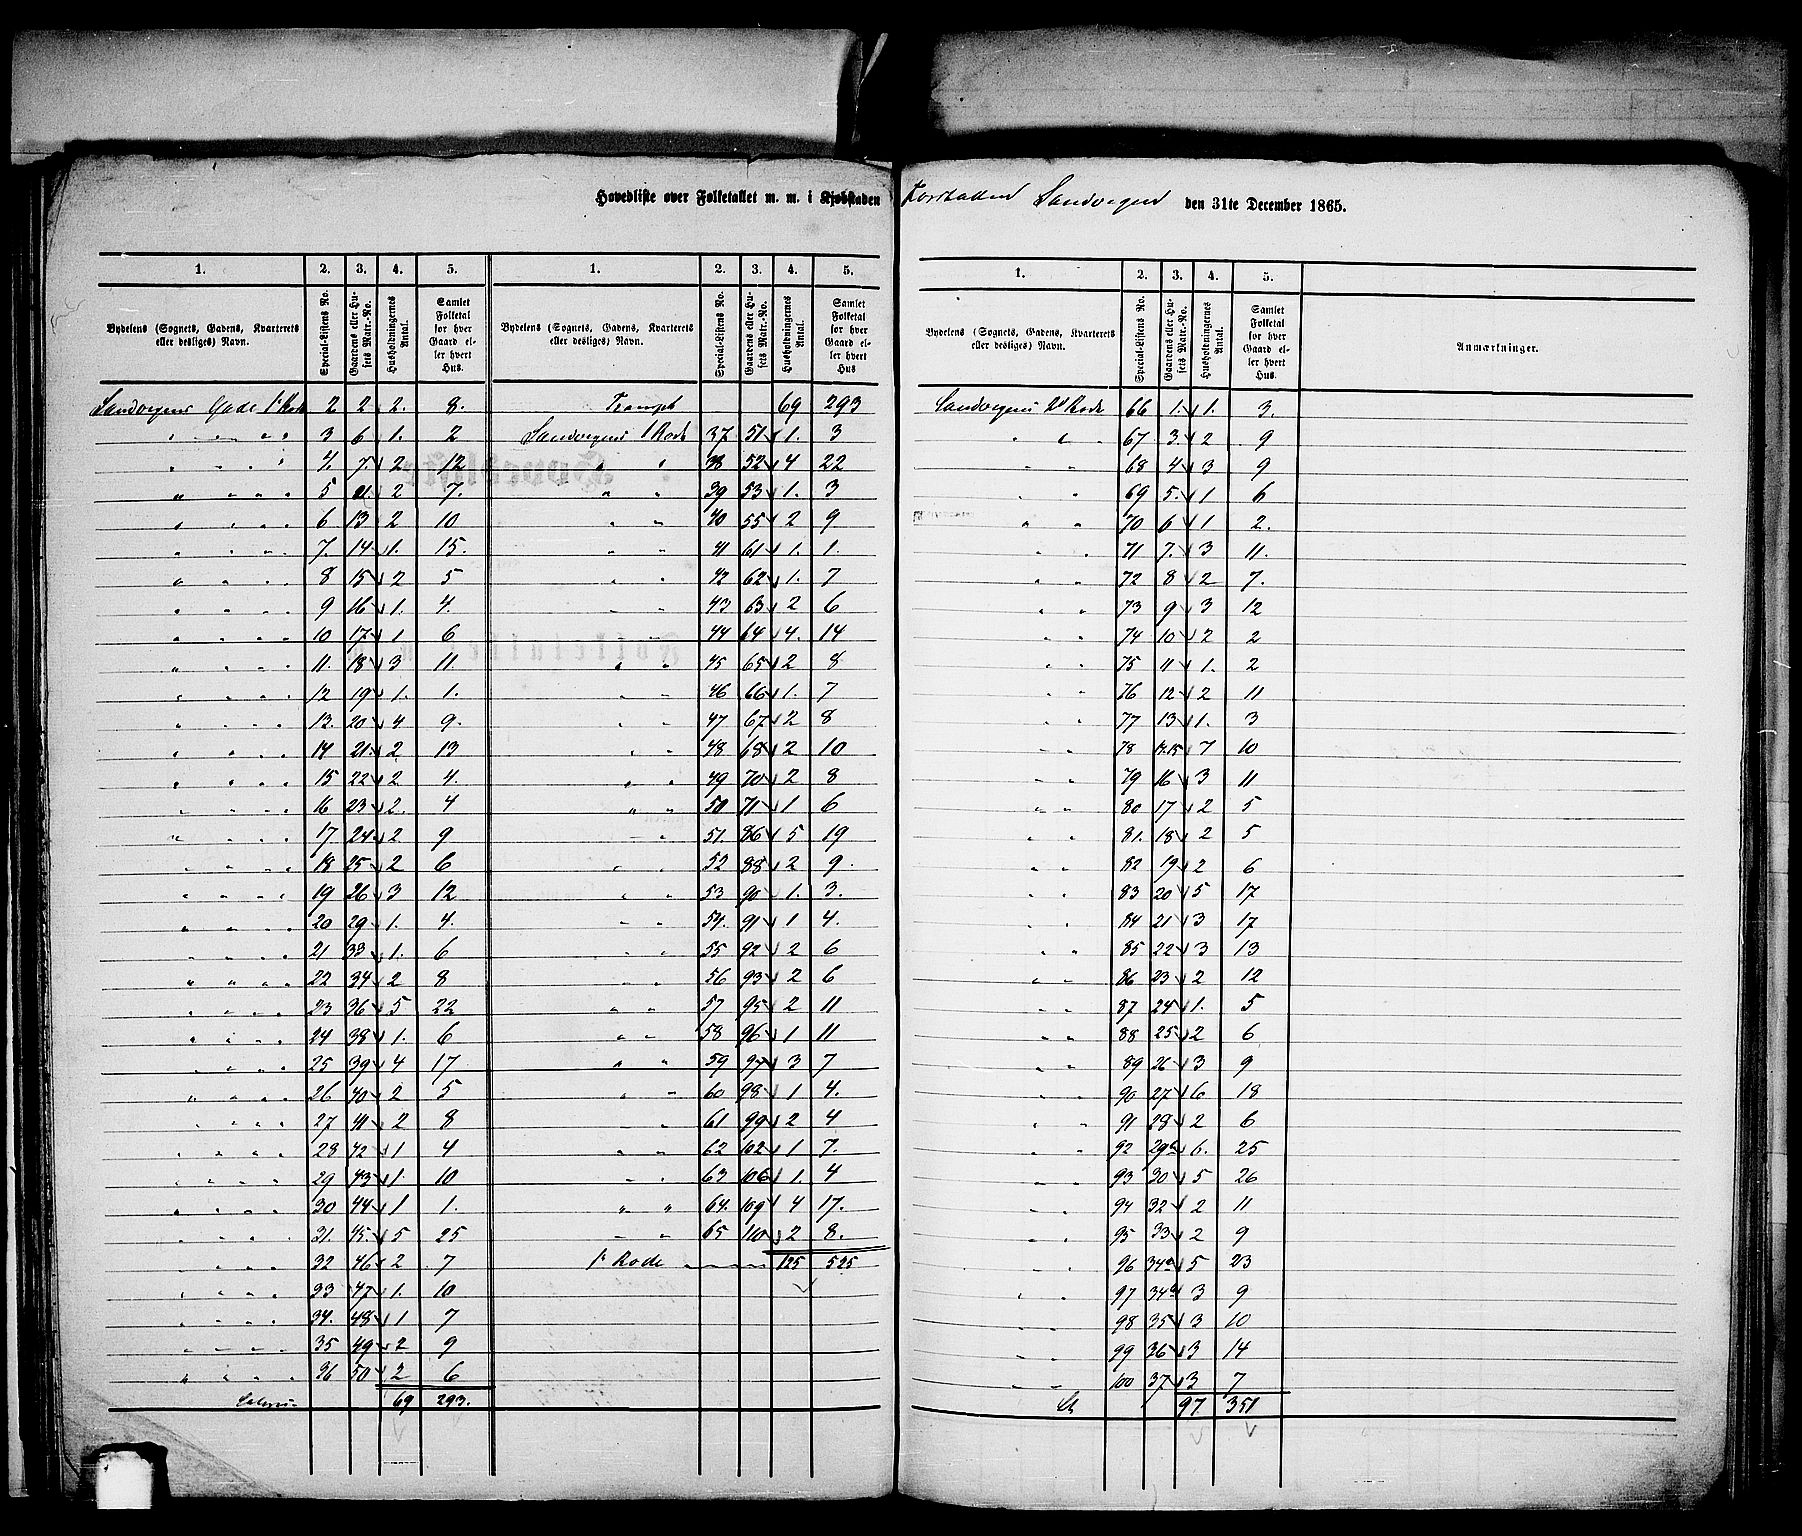 Hovedliste over Folketallet m. m. i Kjøbstaden Forstaden Sandvigen den 31te December 1865.
1. 2. 3. 4. 5. 1. 2. 3. 4. 5.
Bydelens (Sognets, Gadens, Kvarterets eller desliges) Navn. Special-Listens No. Gaardens eller Husets Matr.-No. Husholdningernes Antal. Samlet Folketal for hver Gaard eller hvert Hus. Bydelens (Sognets, Gadens, Kvarterets eller desliges) Navn. Special-Listens No. Gaardens eller Husets Matr.-No. Husholdningernes Antal. Samlet Folketal for hver Gaard eller hvert Hus
Sandvigens Gade 1ste Rode 2 2 2. 8. Transpt 69 293
" " " " 3 6 1. 2 Sandvigens 1 Rode 37 51 1. 3
" " " " 4. 7. 2. 12 " " 38 52 4 22
" " " " 5 2 7. " " 39 53 1. 3
" " " " 6 13 2 10 " " 40 55 2 9.
" " " " 7. 14 1. 15. " " 41 61 1. 1.
" " " " 8 15 2 5 " " 42 62 1. 7
" " " " 9 16 1. 4. " " 43 63 2 6
" " " " 10 17 1 6 " " 44 64 4. 14
" " " " 11. 18 3 11. " " 45 65 2 8
" " " " 12 19 1. 1. " " 46 66 1. 7
" " " " 13. 20 4 9. " " 47 67 2 8
" " " " 14 21. 2. 13 " " 48 68 2 10
" " " " 15 22 2 4. " " 49 70 2 8
" " " " 16 23 2. 4 " " 50 71 1 6
" " " " 17 24 2 9 " " 51. 86 5 19
" " " " 18 25 2 6 " " 52 88 2 9.
" " " " 19 26 3 12 " " 53 90 1. 3.
" " " " 20 29 1. 4. " " 54. 91 1 4.
" " " " 21 33 1. 6 " " 55 92 2 6
" " " " 22 34 2 8 " " 56 93 2 6
" " " " 23 36 5 22 " " 57 95 2 11
" " " " 24 38 1. 6 " " 58 96 1 11
" " " " 25 39 4 17 " " 59 97 3 7
" " " " 26 40 2 5 " " 60 98 1 4.
" " " " 27 41 2 8 " " 61 99 2 4
" " " " 28 42 1 4 " " 62 102 1 7.
" " " " 29 43 1. 10 " " 63 106 1. 4
" " " " 30 44 1 1. " " 64. 109 4 17.
" " " " 31. 45. 5 25 " " 65 110 2 8.
" " " " 32 46 2 7 1ste Rode 125 525
" " " " 33 47 1. 10
" " " " 34. 48 1 7
" " " " 35 49 2 9
" " " " 36 50 2 6
69 293.
1. 2. 3. 4. 5.
Bydelens (Sognets, Gadens, Kvarterets eller desliges) Navn. Special-Listens No. Gaardens eller Husets Matr.-No. Husholdningernes Antal. Samlet Folketal for hver Gaard eller hvert Hus. Anmærkninger.
Sandvigens 2d Rode 66 1. 1. 3.
" " 67 3. 2 9
" " 68 4 3 9
" " 69 5. 1 6
" " 70 6 1 2.
" " 71 7. 3 11.
" " 72 8 2 7.
" " 73 9 3 12
" " 74 10 2 2
" " 75 11 1. 2
" " 76 12 2 11
" " 77 13 1. 3
" " 78 14.15 7 10
" " 79 16 3 11
" " 80 17 2 5
" " 81. 18 2 5
" " 82 19 2 6
" " 83 20 5 17
" " 84 21 3 17
" " 85 22 3 13
" " 86 23 2 12
" " 87 24 1. 5
" " 88 25 2 6
" " 89 26 3 9
" " 90 27 6 18
" " 91 28 2 6
" " 92 29a 6. 25
" " 93 30 5 26
" " 94 32 2 11
" " 95 33 2 9
" " 96 34a 5 23
" " 97 34b 3 9
" " 98 35 3 10
" " 99 36 3 14
" " 100 37 3 7
97 351